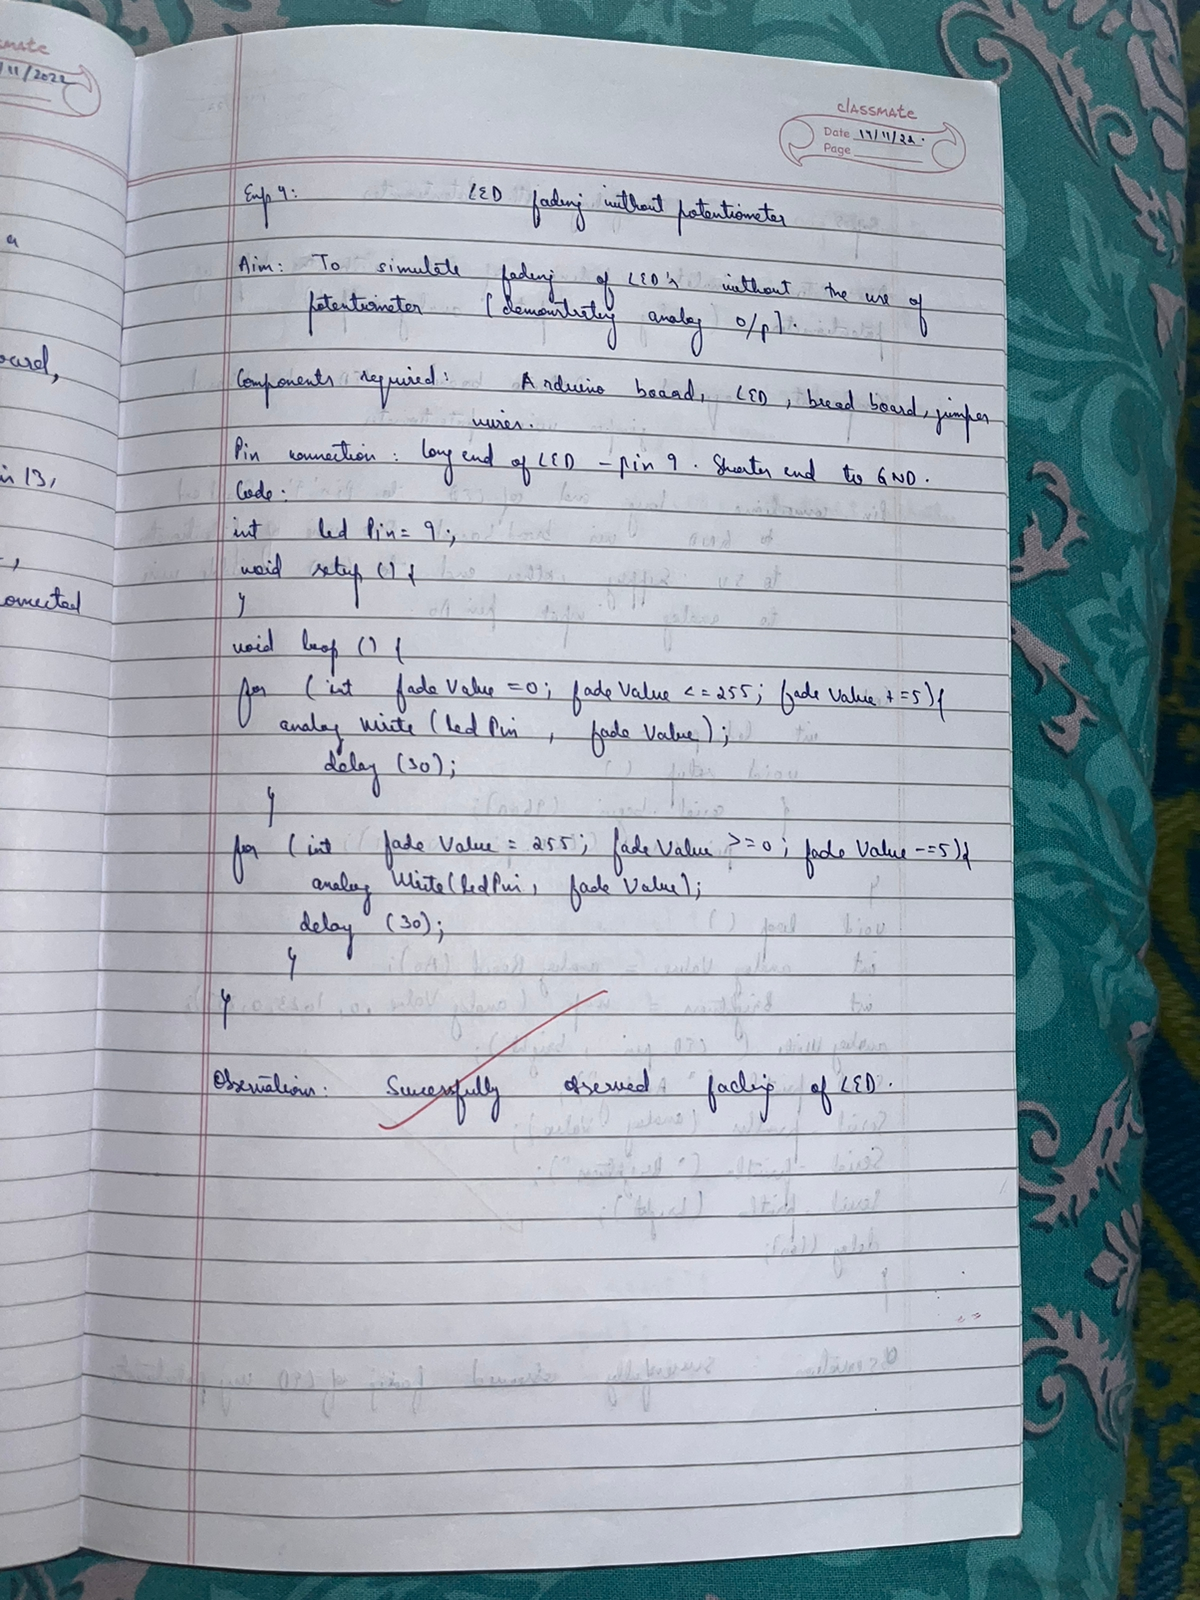 ssmate
/11/2022
a
oard,
in 13,
onnected
classmate
Date 17/11/22.
Page
Exp 4: LED fading without potentiometer
Aim: To simulate fading of LED's without the use of
potentiometer [demonstrating analog o/p].
Components required: Arduino board, LED, bread board, jumper
wires.
Pin connection: long end of LED - pin 9. Shorter end to GND.
Code:
int led Pin = 9;
void setup () {
}
void loop () {
for (int fade Value = 0; fade Value <= 255; fade Value += 5){
analog Write (led Pin, fade Value);
delay (30);
}
for (int fade Value = 255; fade Value >= 0; fade Value -= 5){
analog Write (led Pin, fade Value);
delay (30);
}
}
Observations: Successfully observed fading of LED.